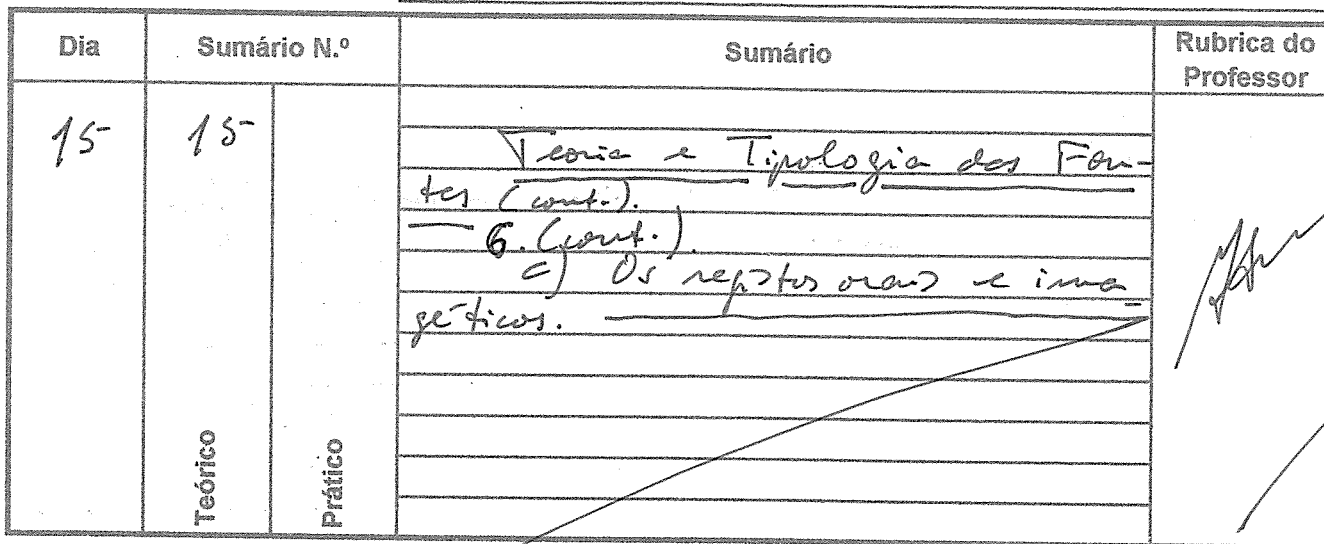 Dia
Sumário N.º
Sumário
Rubrica do
Professor
15
15
Teoria e Tipologia das Fon-
tes (cont.).
6. (cont.).
c) Os registos orais e ima-
géticos.
Teórico
Prático